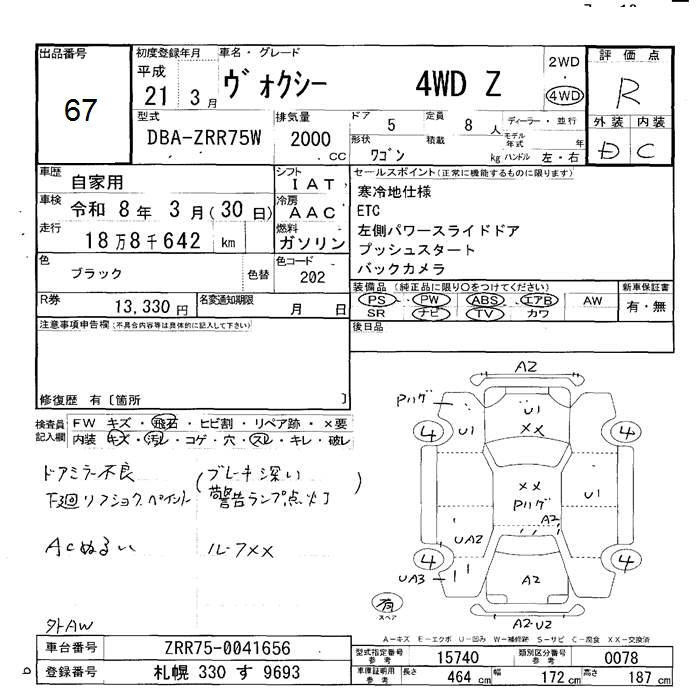 出品番号
67
初度登録年月
平成
21 3月
車名・グレード
ヴォクシー 4WD Z
2WD
4WD
評価点
R
外装 内装
D C
型式
DBA-ZRR75W
排気量
2000
CC
ドア 5
定員 8人
形状 ワゴン
積載 kg
ディーラー・並行
モデル年式 年
ハンドル 左・右
車歴 自家用
シフト IAT
車検 令和 8年 3月(30日)
冷房 AAC
走行 18万8千642 km
燃料 ガソリン
色 ブラック 色替
色コード 202
R券 13,330円
名変通知期限 月 日
セールスポイント(正常に機能するものに限ります)
寒冷地仕様
ETC
左側パワースライドドア
プッシュスタート
バックカメラ
装備品 (純正品に限り〇をつけてください)
PS・PW・ABS・エアB・AW
SR ナビ・TV・カワ
新車保証書
有・無
後日品
注意事項申告欄(不具合内容等は具体的に記入して下さい)
修復歴 有〔箇所 〕
検査員記入欄
FW キズ・飛石・ヒビ割・リペア跡・×要
内装 キズ・汚レ・コゲ・穴・スレ・キレ・破レ
ドアミラー不良
(ブレーキ深い
警告ランプ点灯)
下廻リフショク、ペイント
ACぬるい
ルーフXX
外AW
A2
Pハゲ
U1
U1
XX
4
4
XX
Pハゲ
U1
A2
UA2
4
4
UA3
A2
有
スペア
A2・U2
A-キズ E-エクボ U-凹み W-補修跡 S-サビ C-腐食 XX-交換済
車台番号 ZRR75-0041656
登録番号 札幌 330 す 9693
型式指定番号 参考 15740
類別区分番号 参考 0078
車庫証明用 参考
長さ 464cm 幅 172cm 高さ 187cm